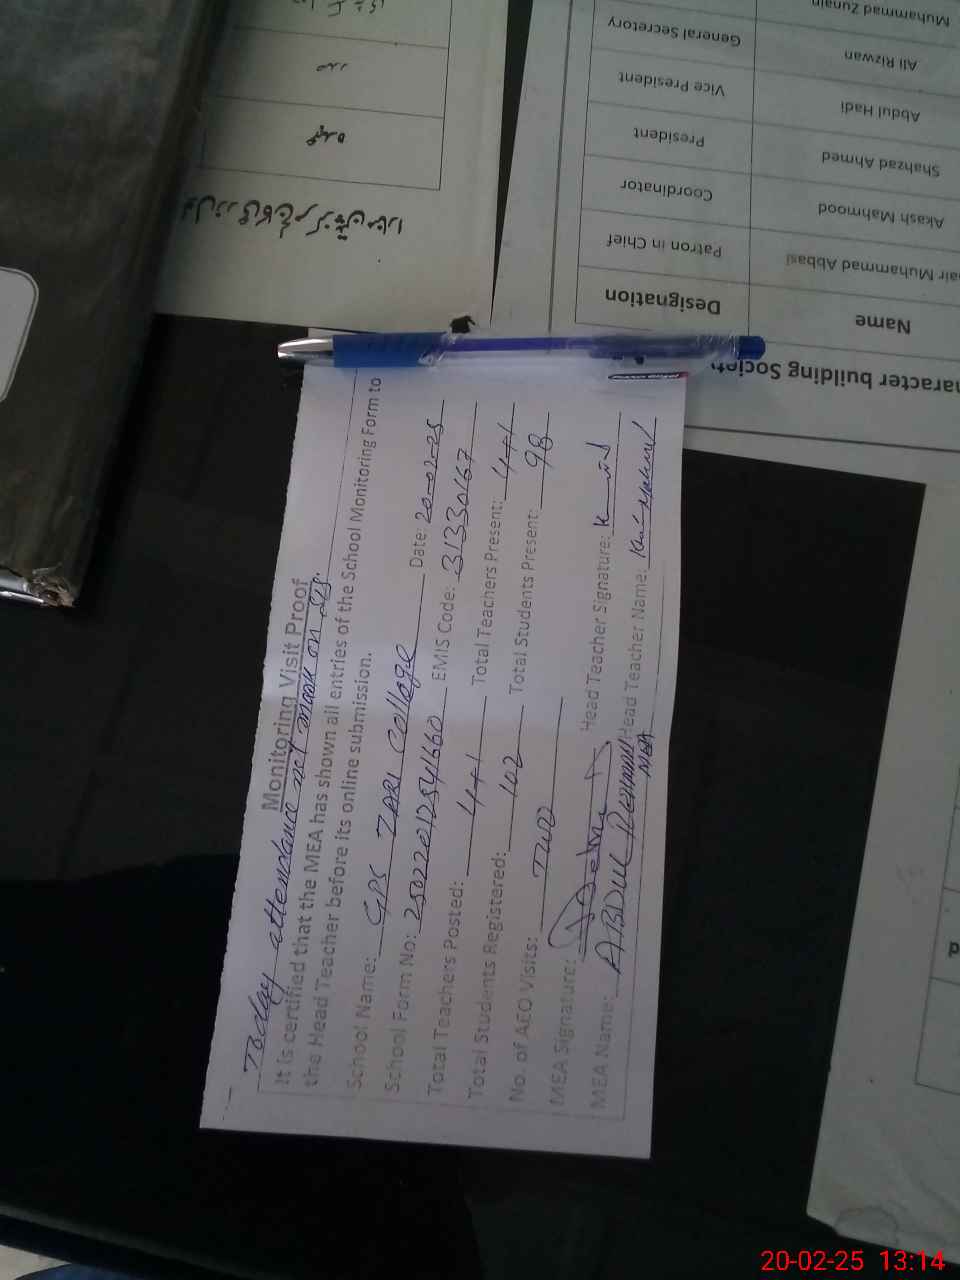 Monitoring Visit Proof
Today attendance not mark on SIS.
It is certified that the MEA has shown all entries of the School Monitoring Form to
the Head Teacher before its online submission.
School Name: GPS ZARI College Date: 20-02-25
School Form No: 250220172541660 EMIS Code: 31330167
Total Teachers Posted: 4+1 Total Teachers Present: 4+1
Total Students Registered: 102 Total Students Present: 98
No. of AEO Visits: Two
MEA Signature: Head Teacher Signature:
MEA Name: ABDUL Rehman Head Teacher Name:
MEA
aracter building Society
Name Designation
air Muhammad Abbasi Patron in Chief
Akash Mahmood Coordinator
Shahzad Ahmed President
Abdul Hadi Vice President
Ali Rizwan General Secretary
Muhammad Zunain
20-02-25 13:14